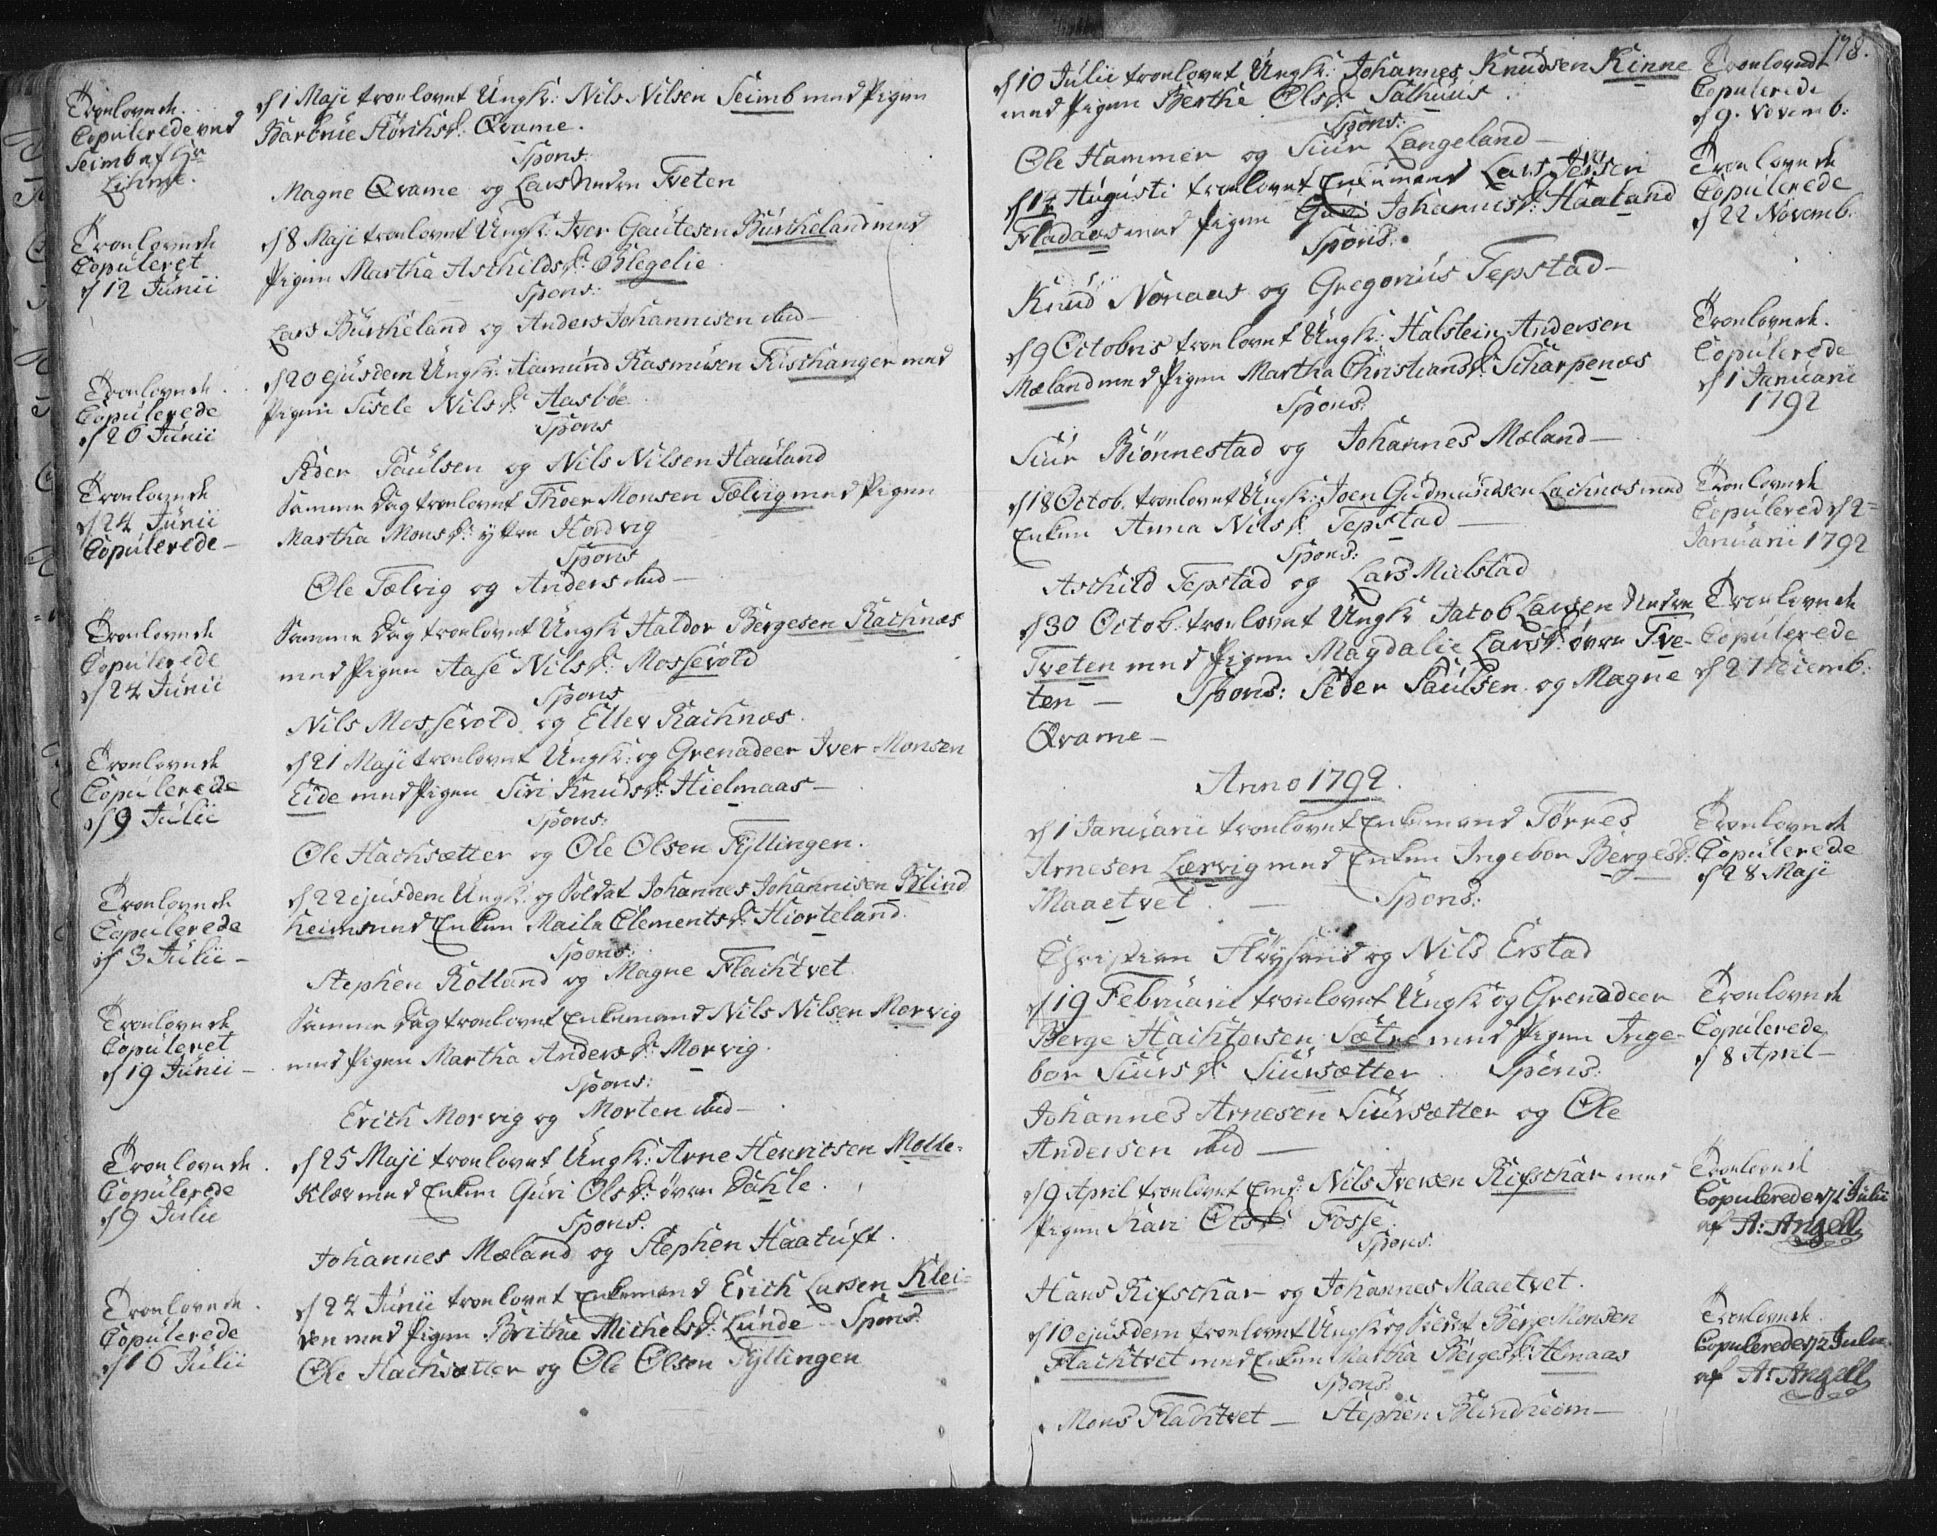 Troelovede
Copulerede ved
Seimb af Hr
d 1 Maji troelovet Ungk: Nils Nilsen Seimb med Pigen
Barbrue Størchsd: Qvame.
Spons:
Magne Qvame og Lars Nedre Tveten
Troelovede
Copuleret
d 12 Junii
d 8 Maji troelovet Ungk: Iver Gautesen Bürkeland med
Pigen Martha Aschildsd: Blegelie
Spons:
Lars Bürkeland og Anders Johannesen ibid—
Troelovede
Copulerede
d 26 Junii
d 20 ejusdem Ungk: Aamund Rasmusen Fischanger med
Pigen Sisele Nilsd: Aasbøe
Spons
Peder Paulsen og Nils Nilsen Hauland
Troelovede
d 24 Junii
Copulerede—
Samme Dag troelovet Thoer Monsen Tælvig med Pigen
Martha Monsd: ytre Hordvig
Spons
Ole Tælvig og Anders ibid—
Troelovede
Copulerede
d 24 Junii
Samme Dag troelovet Ungk Haldor Bergesen Rachnæs
med Pigen Aase Nilsd: Mossevold
Spons
Nils Mossevold og Eller Rachnæs.
Troelovede
Copulerede
d 9 Julii
d 21 Maji troelovet Ungk: og Grenadeer Iver Monsen
Eide med Pigen Siri Knudsd: Hielmaas—
Spons:
Ole Hachsætter og Ole Olsen Tyllingen.
Troelovede
Copulerede
d 3 Julii—
d 22 ejusdem Ungk. og Soldat Johannes Johannisen Blind
heim med Enken Maila Clementsd: Hiorteland.
Spons:
Stephen Rolland og Magne Flachtvet
Troelovede
Copuleret
d 19 Junii—
Samme Dag troelovet Enkemand Nils Nilsen Morvig
med Pigen Martha Andersd: Morvig.
Spons:
Erich Morvig og Morten ibid—
Troelovede
Copulerede
d 9 Julii
d 25 Maji troelovet Ungk: Arne Henricsen Molde-
klæv med Enken Guri Olsd: øvre Dahle.
Spons:
Johannes Mæland og Stephen Haatuft.
Troelovede
Copulerede
d 16 Julii
d 24 Junii troelovet Enkemand Erich Larsen Klei-
ven med Pigen Brithe Michelsd: Lunde— Spons
Ole Hachsætter og Ole Olsen Tyllingen
178.
d 10 Julii troelovet Ungk: Johannes Knudsen Kinne
med Pigen Berthe Olsd: Salhuus
Spons:
Ole Hammer og Siur Langeland—
Troelovede
Copulerede
d 9. Novemb:
d 14 Augusti troelovet Enkemand Lars Jensen
Fladaas med Pigen Guri Johannesd: Haaland
Spons:
Knud Noraas og Gregorius Tepstad—
Troelovede
Copulerede
d 22 Novemb.
d 9 Octobris troelovet Ungk: Halstein Andersen
Mæland med Pigen Martha Christiansd: Scharpenæs
Spons:
Siur Biønnestad og Johannes Mæland—
Troelovede.
Copulerede
d 1 Januarii
1792
d 18 Octob. troelovet Ungk: Joen Gudmundsen Lachnæs med
Enken Anna Nilsd: Tepstad—
Spons:
Aschild Tepstad og Lars Mielstad
Troelovede
Copulered d 2=
Januarii 1792
d 30 Octob: troelovet Ungk Jacob Larsen Nedre
Tveten med Pigen Magdalie Larsd: øvre Tve-
ten— Spons: Peder Paulsen og Magne
Qvame—
Troelovede
Copulerede
d 27 Decemb:
Anno 1792.
d 1 Januarii troelovet Enkemand Tørres
Arnesen Lærvig med Enken Ingebor Bergesd:
Maaetvet.— Spons:
Christian Fløysand og Nils Erstad
Troelovede
Copulerede
d 28 Maji
d 19 Februarii troelovet Ungk og Grenadeer
Berge Hachtorsen Sætre med Pigen Inge-
bor Siursd Siursætter. Spons:
Johannes Arnesen Siursætter og Ole
Andersen ibid—
Troelovede
Copulerede
d 8 April—
d 9 April troelovet Emd: Nils Iversen Rifschar med
Pigen Kari Olsd: Fosse.
Spons:
Hans Rifschar og Johannes Maaetvet.
Troelovede
Copulerede d 1 Julii
af A: Angell
d 10 ejusdem troelovet Ungk og Soldat Berge Monsen
Flachtvet med Enken Martha Bergesd: Almaas
Spons:
Mons Flachtvet— Stephen Blindheim—
Troelovede.
Copulerede
af A: Angell